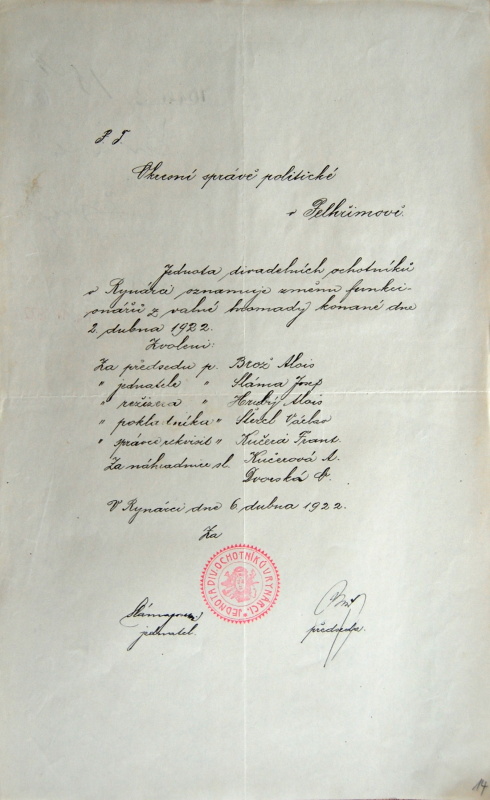 P. T.
Okresní správě politické
v Pelhřimově.
Jednota divadelních ochotníků
v Rynárci oznamuje změnu funkci-
onářů z valné hromady konané dne
2. dubna 1922.
Zvoleni:
Za předsedu p. Brož Alois
" jednatele " Sláma Josef
" režiséra " Hrubý Alois
" pokladníka " Václav
" správce rekvisit " Kučera Frant.
Za náhradnice sl. Kučerová A.
Dvorská
V Rynárci dne 6. dubna 1922.
Za
JEDNOTA DIV. OCHOTNÍKŮ V RYNÁRCI.
jednatel.
předseda.
14